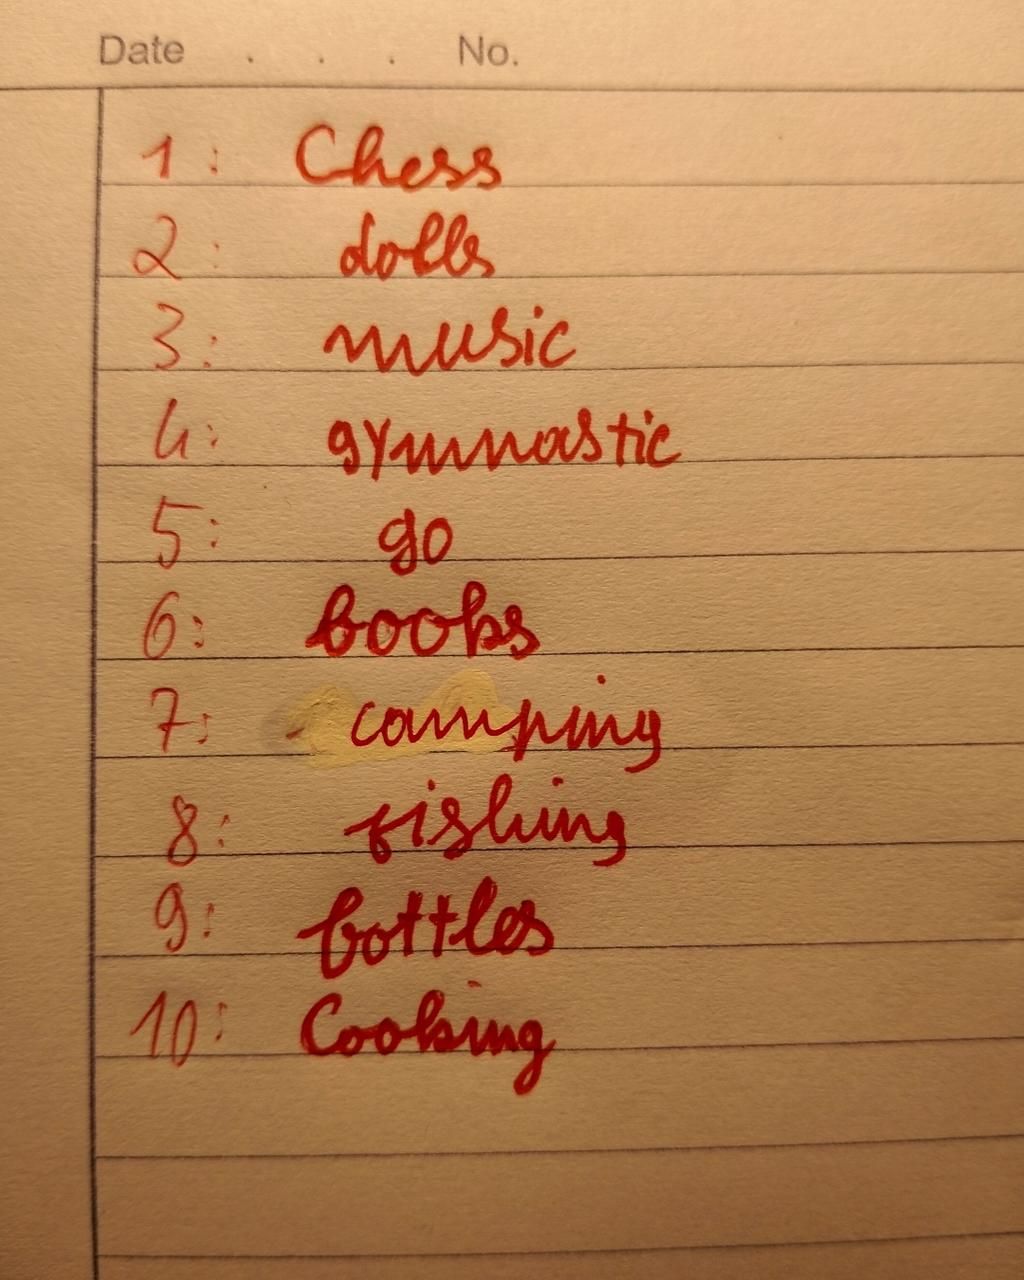 Date . . . No.
1: Chess
2: dolls
3: music
4: gymnastic
5: go
6: books
7: camping
8: fishing
9: bottles
10: Cooking